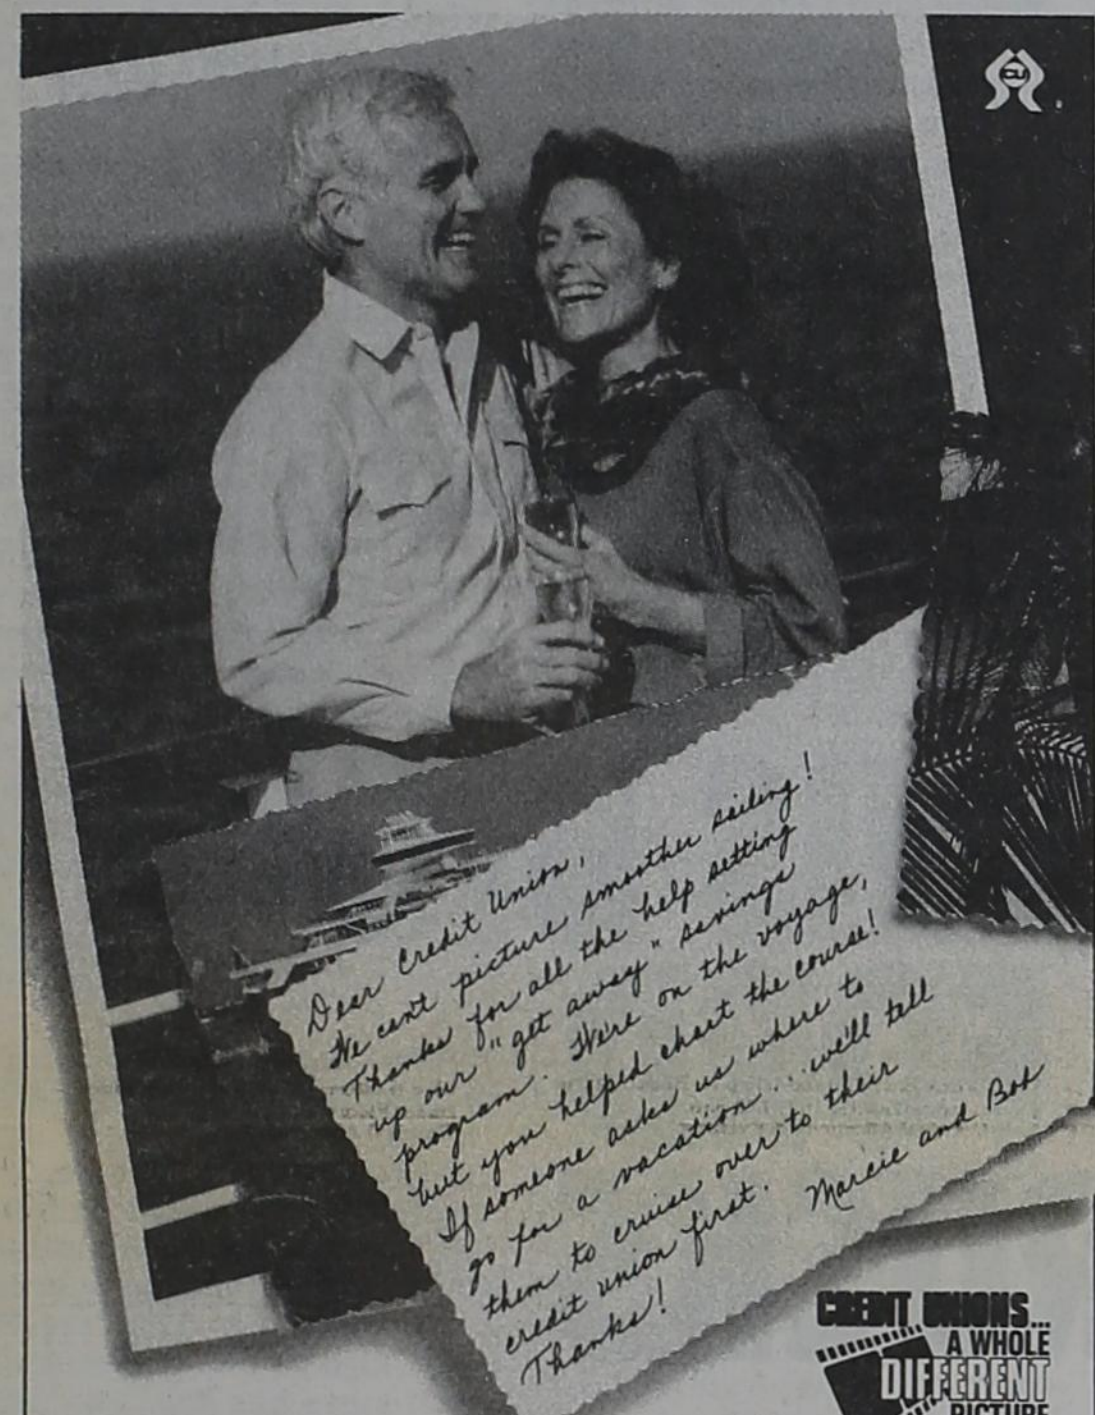 CU
Dear Credit Union,
We can't picture smoother sailing!
Thanks for all the help setting
up our "get away" savings
program. We're on the voyage,
but you helped chart the course!
If someone asks us where to
go for a vacation... we'll tell
them to cruise over to their
credit union first.
Thanks!
Marcie and Bob
CREDIT UNIONS...
A WHOLE
DIFFERENT
PICTURE